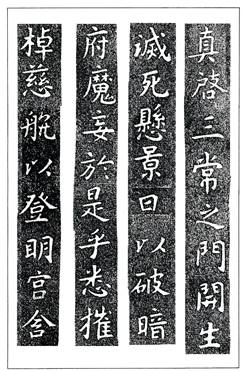 真啓三常之門開生
滅死懸景日以破暗
府魔妄於是乎悉摧
棹慈航以登明宮含